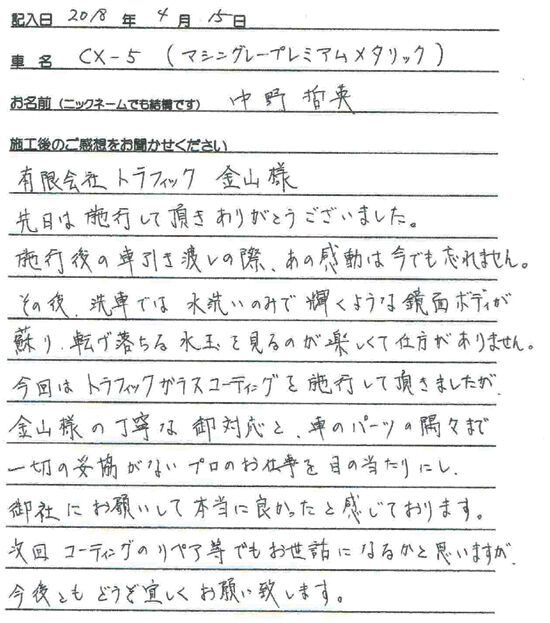 記入日 2018 年 4 月 15 日
車 名 CX-5 (マシングレープレミアムメタリック)
お名前(ニックネームでも結構です) 中野哲央
施工後のご感想をお聞かせください
有限会社トラフィック 金山様
先日は施行して頂きありがとうございました。
施行後の車引き渡しの際、あの感動は今でも忘れません。
その後、洗車では水洗いのみで輝くような鏡面ボディが
蘇り、転げ落ちる水玉を見るのが楽しくて仕方がありません。
今回はトラフィックガラスコーティングを施行して頂きましたが、
金山様の丁寧な御対応と、車のパーツの隅々まで
一切の妥協がないプロのお仕事を目の当たりにし、
御社にお願いして本当に良かったと感じております。
次回コーティングのリペア等でもお世話になるかと思いますが、
今後ともどうぞ宜しくお願い致します。